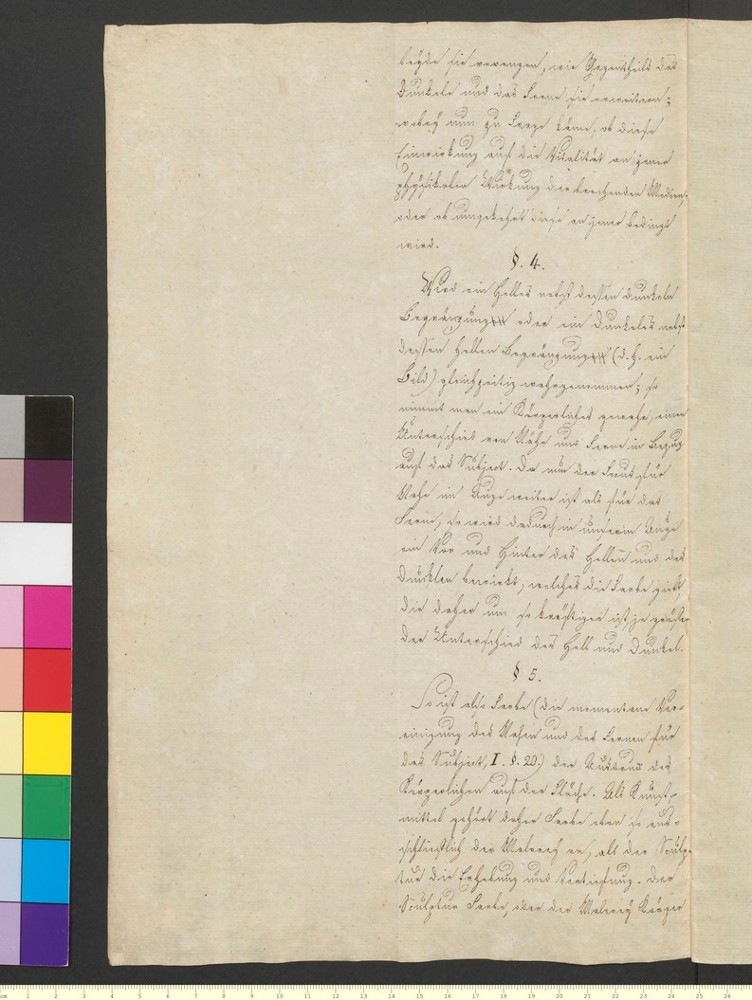 beyde sie verengen, wie Gegentheils das
Dunkele und das Ferne sie erweitern;
wobey nun zu Frage käme, ob diese
Einwirkung auf die Vitalität an jener
physikalen Wirkung der brechenden Medien,
oder ob umgekehrt diese an jener bedingt
wird.
§. 4.
Wird ein Helles nebst dessen dunkeln
Begränzung oder ein Dunkeles nebst
dessen hellen Begränzung (d. h. ein
Bild) gleichzeitig wahrgenommen; so
nimmt man ein Körperliches gewahr, einen
Unterschied von Nähe und Ferne in Bezug
auf das Subject. Da nun der Focus für
Nahe im Auge weiter ist als für das
Ferne, so wird dadurch in unserm Auge
ein Vor und Hinter des Hellen und des
Dunklen bewirkt, welches die Farbe giebt,
die daher um so kräftiger ist, je größer
der Unterschied des Hell und Dunkel.
§ 5.
So ist also Farbe (die momentane Ver-
einigung des Nahen und des Fernen für
das Subject, I. §. 20.) der Ausdruck des
Körperlichen auf der Fläche. Als Kunst-
mittel gehört daher Farbe eben so aus-
schließlich der Malerey an, als der Sculp-
tur die Erhebung und Vertiefung. Der
Sculptur Farbe, oder der Malerey Körper